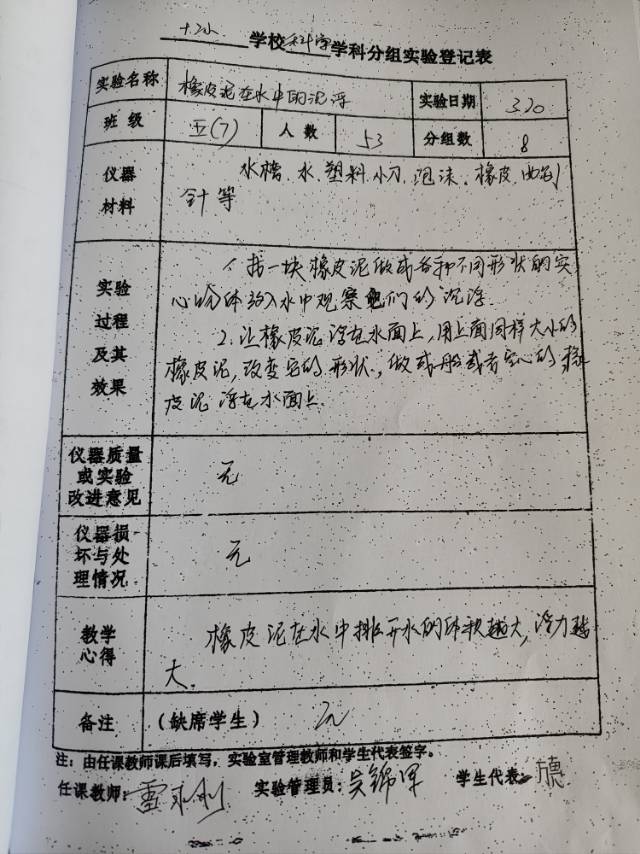 学校科学学科分组实验登记表
实验名称 橡皮泥在水中的沉浮 实验日期 3.20
班级 五(7) 人数 53 分组数 8
仪器材料 水槽、水、塑料小刀、泡沫、橡皮、回形
针等
实验过程及其效果 1、找一块橡皮泥做成各种不同形状的实
心物体放入水中观察它们的沉浮.
2.让橡皮泥浮在水面上,用上面同样大小的
橡皮泥,改变它的形状,做成船或者空心的橡
皮泥浮在水面上.
仪器质量或实验改进意见 无
仪器损坏与处理情况 无
教学心得 橡皮泥在水中排开水的体积越大,浮力越
大.
备注 (缺席学生) 无
注:由任课教师课后填写,实验室管理教师和学生代表签字。
任课教师: 雷永刚 实验管理员: 吴锦军 学生代表: